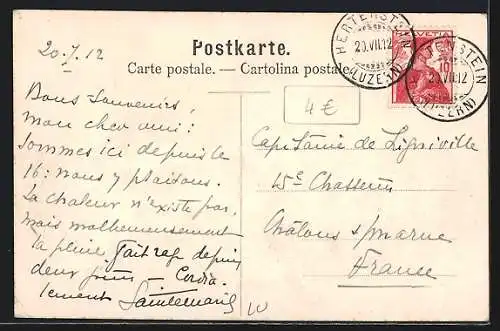 20.7.12
Postkarte.
Carte postale. — Cartolina postale
HERTENSTEIN
20.VII.12
(LUZERN)
HELVETIA
10
HERTENSTEIN
20.VII.12
(LUZERN)
4 €
Bons souvenirs,
mon cher ami:
sommes ici depuis le
16: nous y plaisons.
La chaleur n'existe pas,
mais malheureusement
la pluie fait rage depuis
deux jours — Cordia-
lement
Capitaine de Ligniville
15e Chasseurs
Châlons s/marne
France